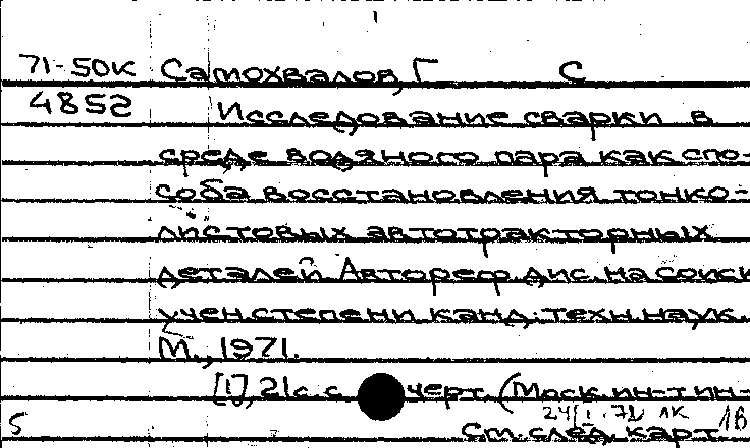 71-50К Самохвалов, Г С
4852 Исследование сварки в
среде водяного пара как спо-
соба восстановления тонко-
листовых автотракторных
деталей Автореф. дис. на соиск
учен. степени канд. техн. наук.
М., 1971.
[1], 21 с. с черт. (Моск. ин-т ин-
24/I. 72 ЛК 1В
5 См. след. карт